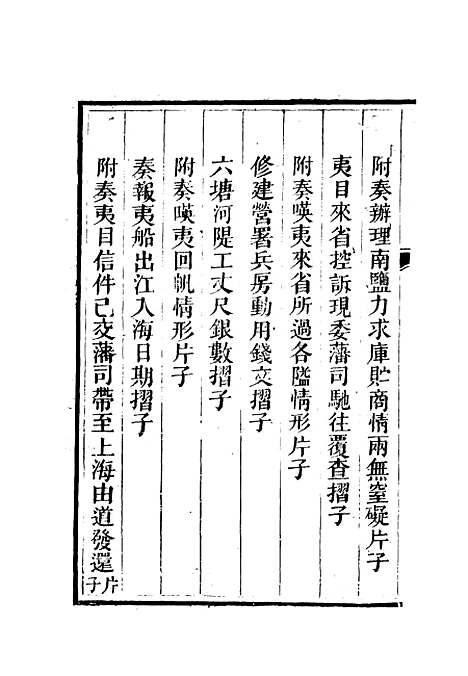 附奏辦理南鹽力求庫貯商情兩無窒礙片子
夷目來省控訴現委藩司馳往覆查摺子
附奏嘆夷來省所過各隘情形片子
修建營署兵房動用錢文摺子
六塘河隄工丈尺銀數摺子
附奏嘆夷回帆情形片子
奏報夷船出江入海日期摺子
附奏夷目信件已交藩司帶至上海由道發還片子